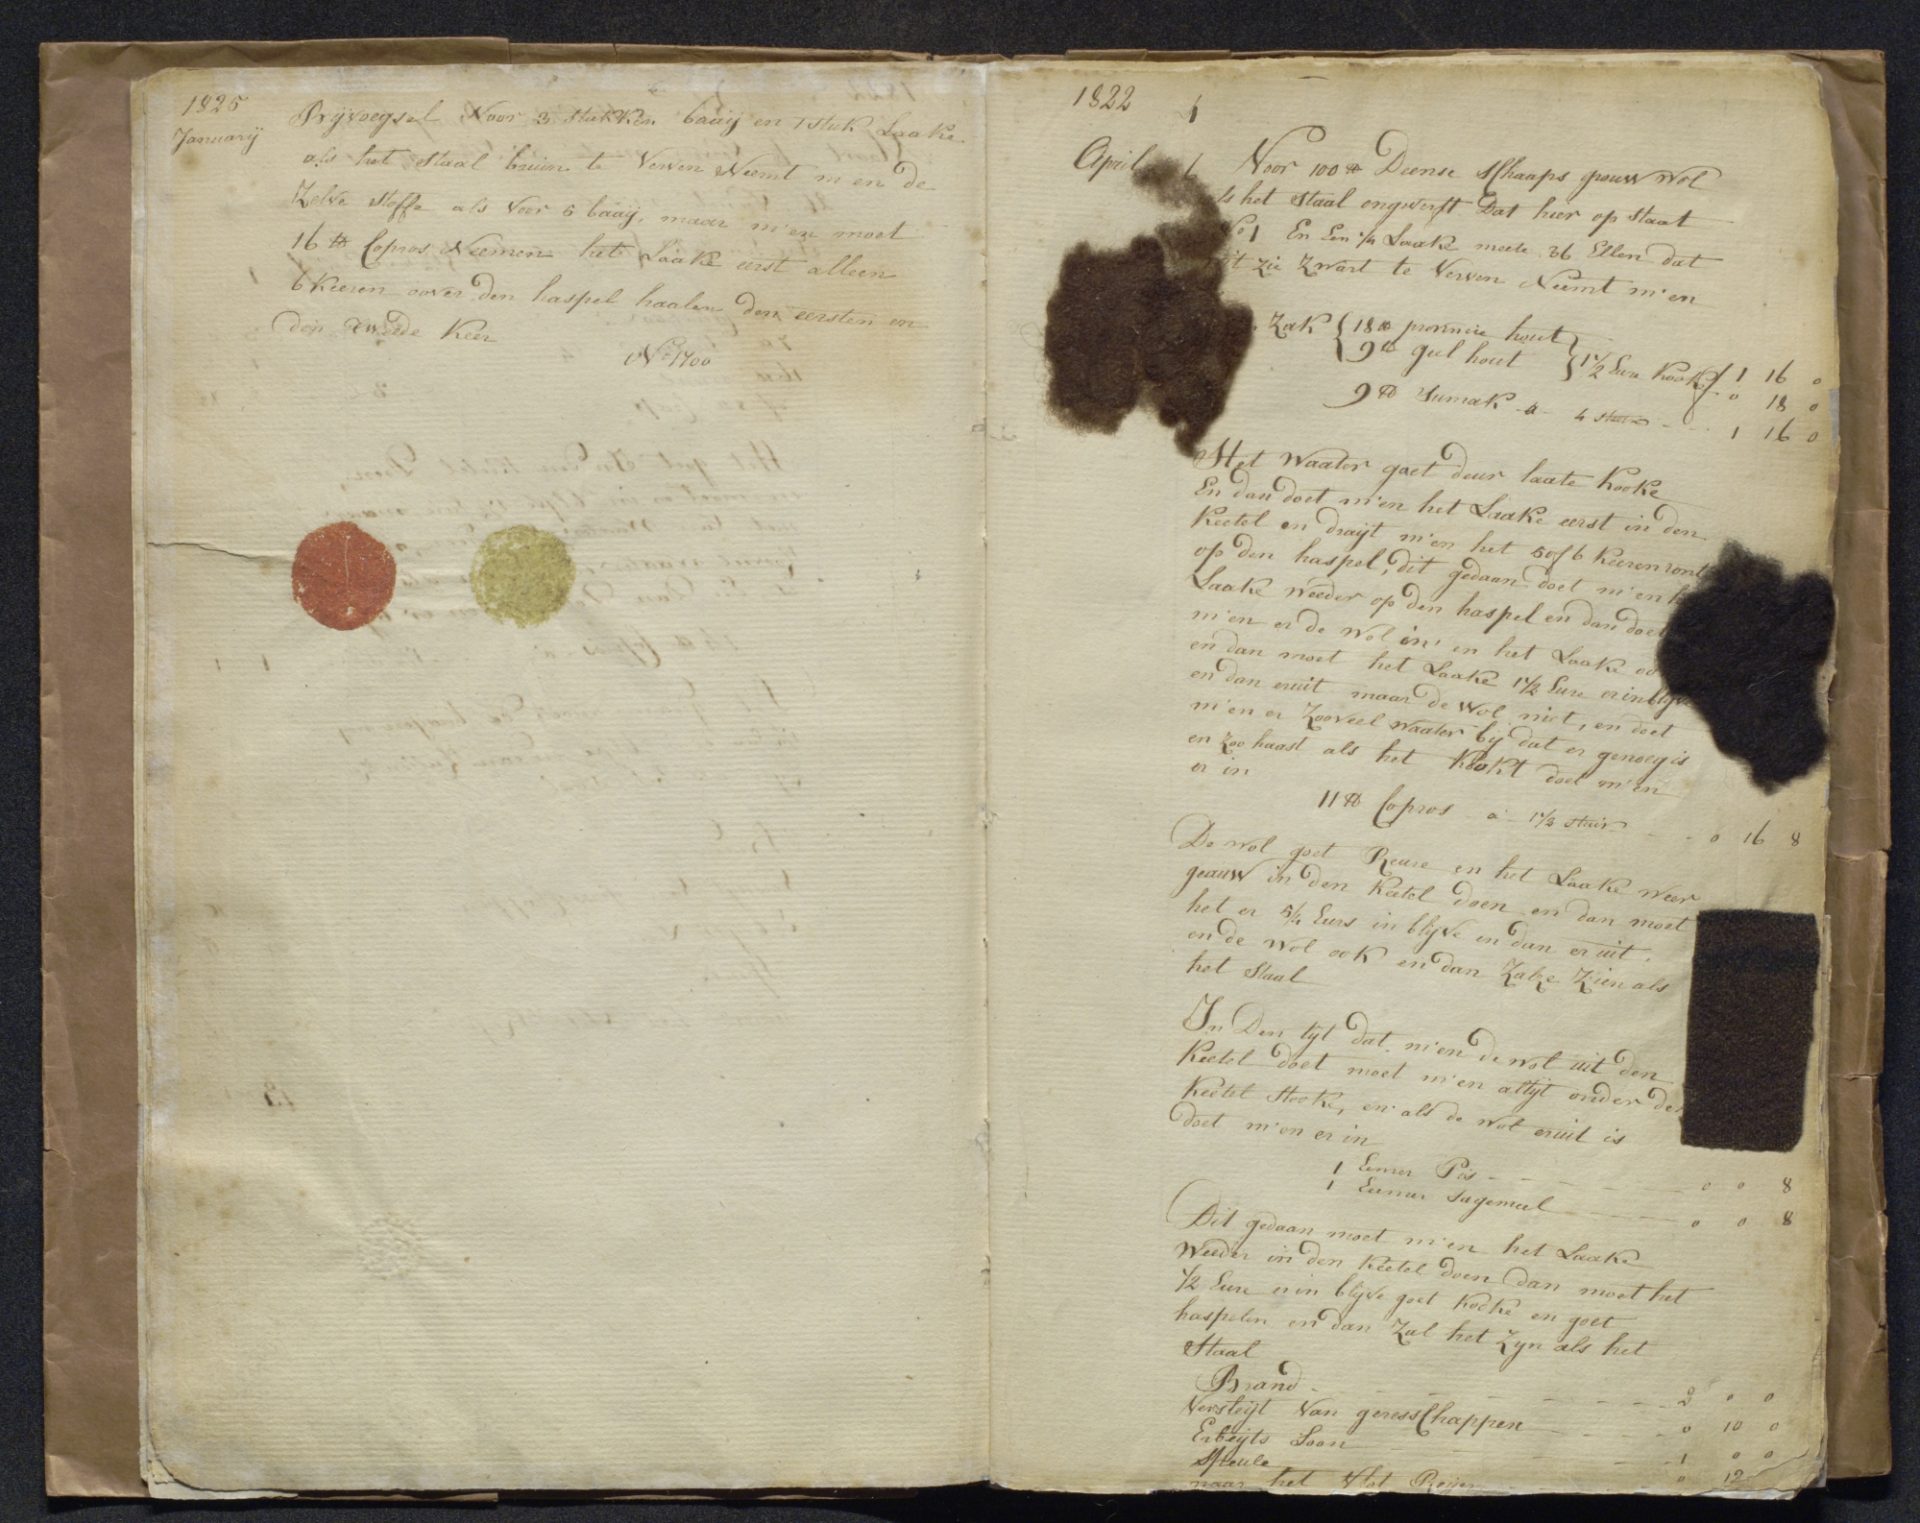 1825
Januarij
Bijvoegsel Voor 3 stukken baaij en 1 stuk Laake
als het staal bruin te Verven Neemt m'en de
Zelve stoffe als Voor 6 baaij, maar m'en moet
16 ℔ Copros Neemen het Laake eerst alleen
6 keeren oover den haspel haalen den eersten en
den tweede keer
No 1700
1822
April
Voor 100 ℔ Deense Schaaps grouw Wol
als het Staal ongeverft Dat hier op staat
No 1 En Een 1/4 Laake meete 36 Ellen dat
Zwart te Verven Neemt m'en
Zak { 18 ℔ provincie hout
9 ℔ geel hout } 1 1/2 Eure kook 1 16 0
0 18 0
9 ℔ Sumak a 4 stuiv 1 16 0
Het Waater goet deur laate kooke
En dan doet m'en het Laake eerst in den
Keetel en draijt m'en het 5 of 6 keeren ront
op den haspel, dit gedaan doet m'en
Laake weeder op den haspel en dan doet
m'en er de Wol in, en het Laake
en dan moet het Laake 1 1/2 Eure erin blijve
en dan eruit maar de Wol niet, en doet
m'en er Zooveel Waater bij dat er genoeg is
en Zoo haast als het kookt doet m'en
er in
11 ℔ Copros a 1 1/2 stuiv 0 16 8
De Wol goet Reure en het Laake weer
geauw in den Keetel doen en dan moet
het er 5/4 Eurs in blijve en dan eruit.
en de Wol ook en dan Zalze Zien als
het Staal
In Den tijt dat m'en de Wol uit den
Keetel doet moet m'en altijt onder den
Keetel stooke, en als de Wol eruit is
doet m'en er in
1 Eemer Pis 0 0 8
1 Eemer Sagemeel 0 0 8
Dit gedaan moet m'en het Laake
Weeder in den Keetel doen dan moet het
1/2 Eure erin blijve goet kooke en goet
haspelen en dan Zal het Zijn als het
Staal
Brand 2 0 0
Versleijt Van geresschappen 0 10 0
Erbeijts Loon 1 0 0
Speule 0 12
naar het